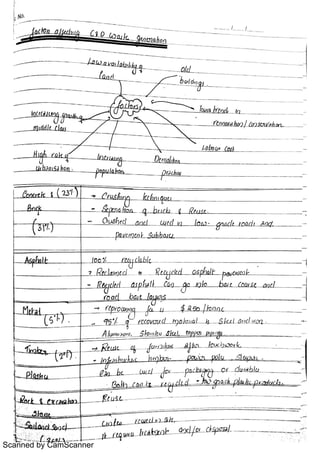 No.
factors affecting C&D waste generation
Low availability of land
old buildings
factors
Increasing growth of middle class
renovation / construction
Labour cost
High rate of urbanisation
Increasing population
Demolition practice
Concrete & (23%)
Brick
(31%)
- Crushing techniques
- Separation of bricks & Reuse
- Crushed and used in low-grade roads and pavement Subbase
Asphalt
100% recyclable
Reclaimed & Recycled asphalt pavement
- Recycled asphalt can go into base course and road base layers
Metal
(5%)
→ reprocessing fee is $250/tonne
95% of recovered material is Steel and iron
Timber (2%)
→ Reuse of furniture after
- timber power pole
Plastic
can be used for packaging or durable
Both can be recycled
Rock & Excavation
Stone
Reuse
Soil and Sand
reused in site
requires treatment and/or disposal
Scanned by CamScanner